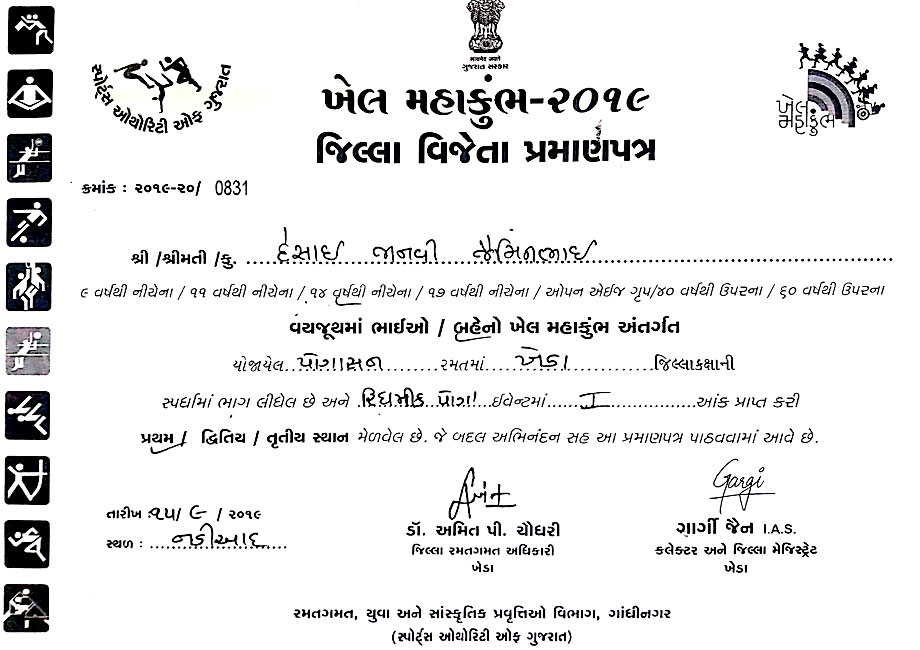 સત્યમેવ જયતે
ગુજરાત સરકાર
સ્પોર્ટ્સ ઓથોરિટી ઓફ ગુજરાત
ખેલ મહાકુંભ
ખેલ મહાકુંભ-૨૦૧૯
જિલ્લા વિજેતા પ્રમાણપત્ર
ક્રમાંક : ૨૦૧૯-૨૦/ 0831
શ્રી /શ્રીમતી /કુ. દેસાઈ જાનવી જૈમિનભાઈ
૯ વર્ષથી નીચેના / ૧૧ વર્ષથી નીચેના / ૧૪ વર્ષથી નીચેના / ૧૭ વર્ષથી નીચેના / ઓપન એઈજ ગૃપ/૪૦ વર્ષથી ઉપરના / ૬૦ વર્ષથી ઉપરના
વયજૂથમાં ભાઈઓ / બહેનો ખેલ મહાકુંભ અંતર્ગત
યોજાયેલ યોગાસન રમતમાં ખેડા જિલ્લાકક્ષાની
સ્પર્ધામાં ભાગ લીધેલ છે અને રિધમીક યોગા ઈવેન્ટમાં I આંક પ્રાપ્ત કરી
પ્રથમ / દ્વિતિય / તૃતીય સ્થાન મેળવેલ છે. જે બદલ અભિનંદન સહ આ પ્રમાણપત્ર પાઠવવામાં આવે છે.
Gargi
તારીખ :૨૫/ ૯ / ૨૦૧૯
સ્થળ : નડીઆદ
ડૉ. અમિત પી. ચૌધરી
જિલ્લા રમતગમત અધિકારી
ખેડા
ગાર્ગી જૈન I.A.S.
કલેક્ટર અને જિલ્લા મેજિસ્ટ્રેટ
ખેડા
રમતગમત, યુવા અને સાંસ્કૃતિક પ્રવૃત્તિઓ વિભાગ, ગાંધીનગર
(સ્પોર્ટ્સ ઓથોરિટી ઓફ ગુજરાત)